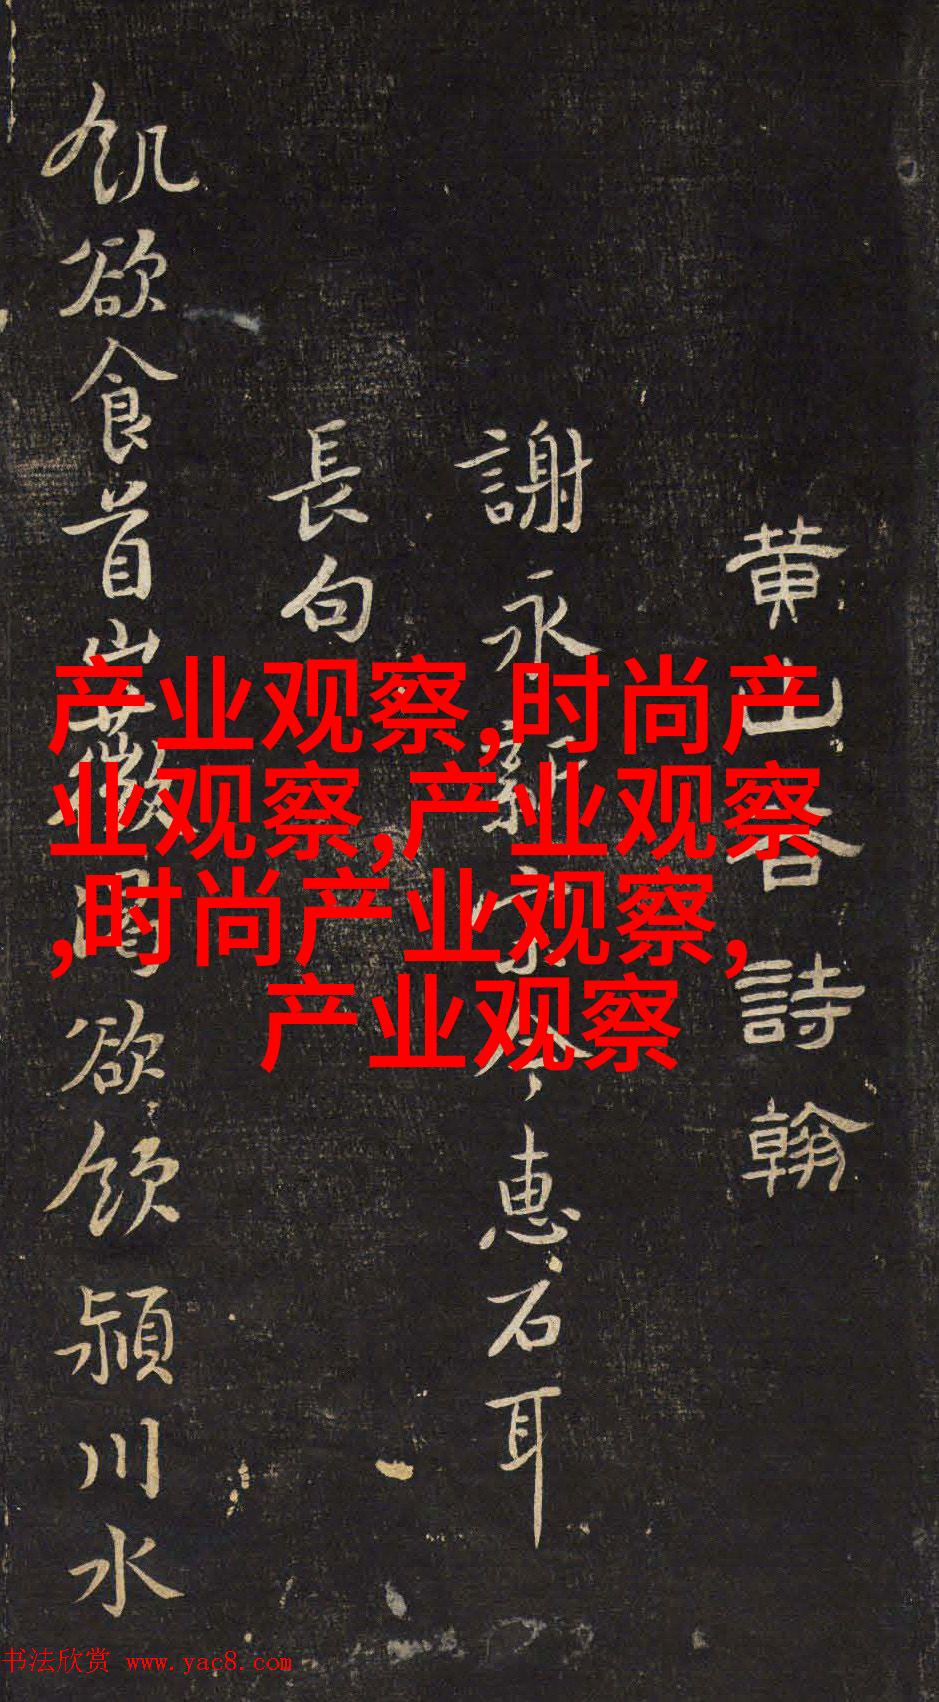 黄山谷詩翰
謝永新宗令惠石耳
長句
飢欲食首山薇渴欲飲潁川水
产业观察,时尚产
业观察,产业观察
,时尚产业观察,
产业观察
书法欣赏 www.yac8.com